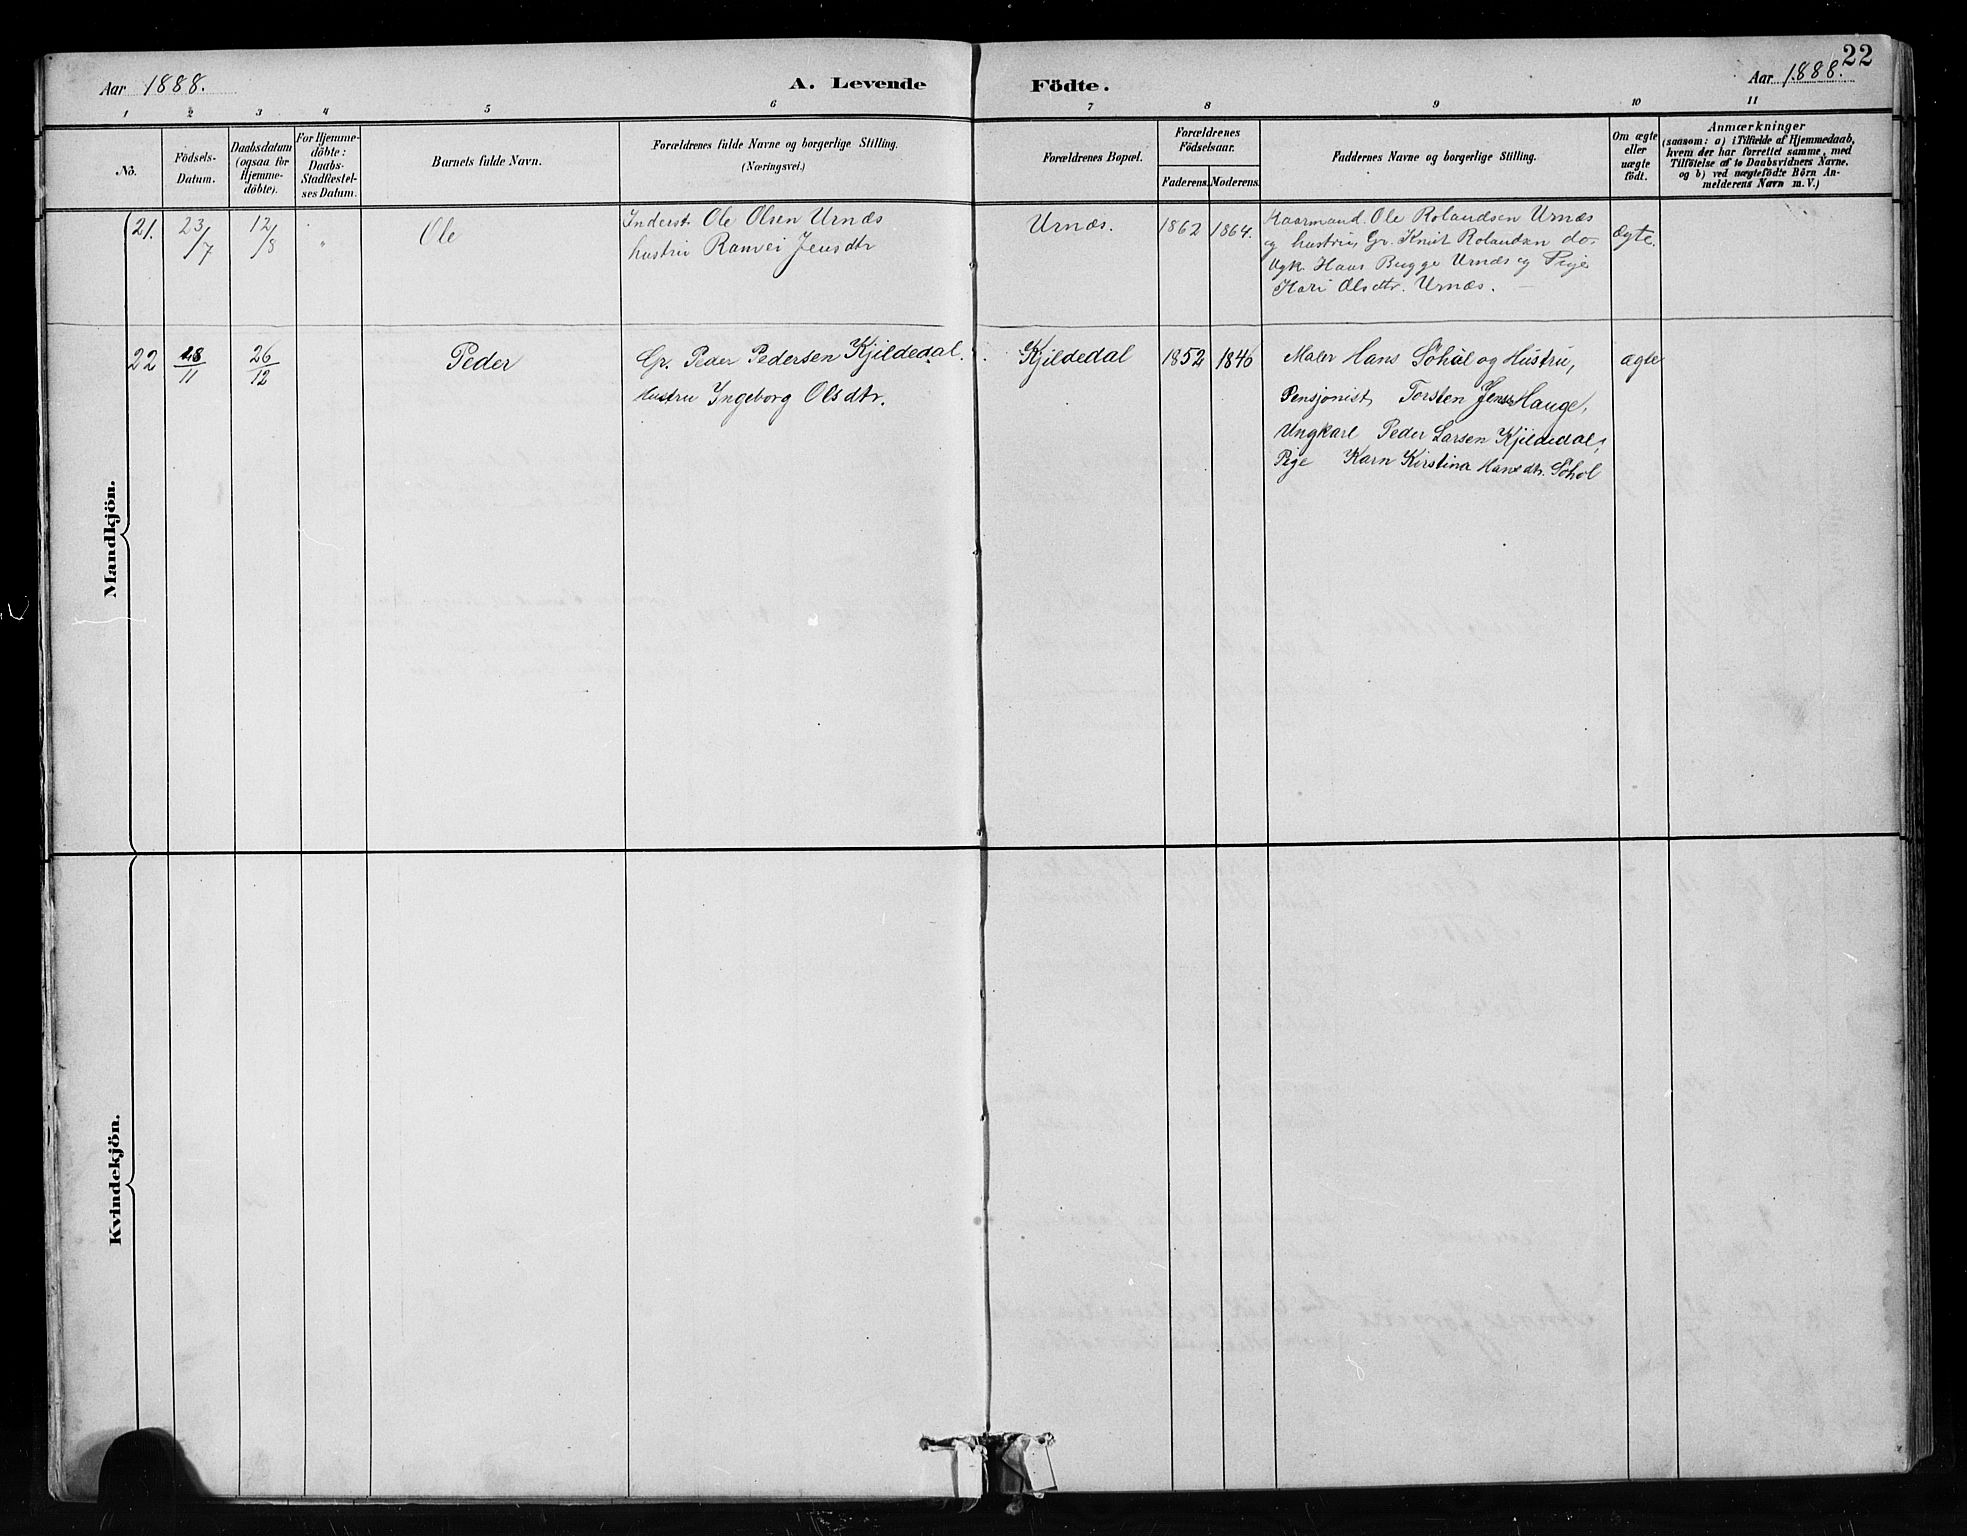 22
Aar 1888.
A. Levende Födte.
Aar 1888.
1 2 3 4 5 6 7 8 9 10 11
No.
Födsels-
Datum.
Daabsdatum
(ogsaa för
Hjemme-
döbte).
For Hjemme-
döbte:
Daabs-
Stadfæstel-
ses Datum.
Barnets fulde Navn.
Forældrenes fulde Navne og borgerlige Stilling.
(Næringsvei.)
Forældrenes Bopæl.
Forældrenes
Födselsaar.
Faderens. Moderens.
Faddernes Navne og borgerlige Stilling.
Om ægte
eller
uægte
födt.
Anmærkninger
(saasom: a) i Tilfælde af Hjemmedaab,
hvem der har forrettet samme, med
Tilföielse af to Daabsvidners Navne.
og b) ved uægtefödte Börn An-
melderens Navn m. V.)
Mandkjön.
21.
23/7
12/8
"
Ole
Inderst Ole Olsen Urnæs
hustru Ranvei Jensdtr
Urnæs.
1862
1864.
Kaarmand Ole Rolandsen Urnæs
og hustru, Gr. Knut Rolandsen do.
Ugk. Hans Bugge Urnæs og Pige
Kari Olsdtr. Urnæs.
Ægte.
22
18/11
26/12
Peder
Gr. Peder Pedersen Kjildedal.
Hustru Ingeborg Olsdtr.
Kjildedal
1852
1846
Maler Hans Söhol og Hustru,
Pensjonist Torsten Jens Hauge,
Ungkarl Peder Larsen Kjildedal,
Pige Karn Kirstina Hansdtr. Söhol
ægte
Kvindekjön.